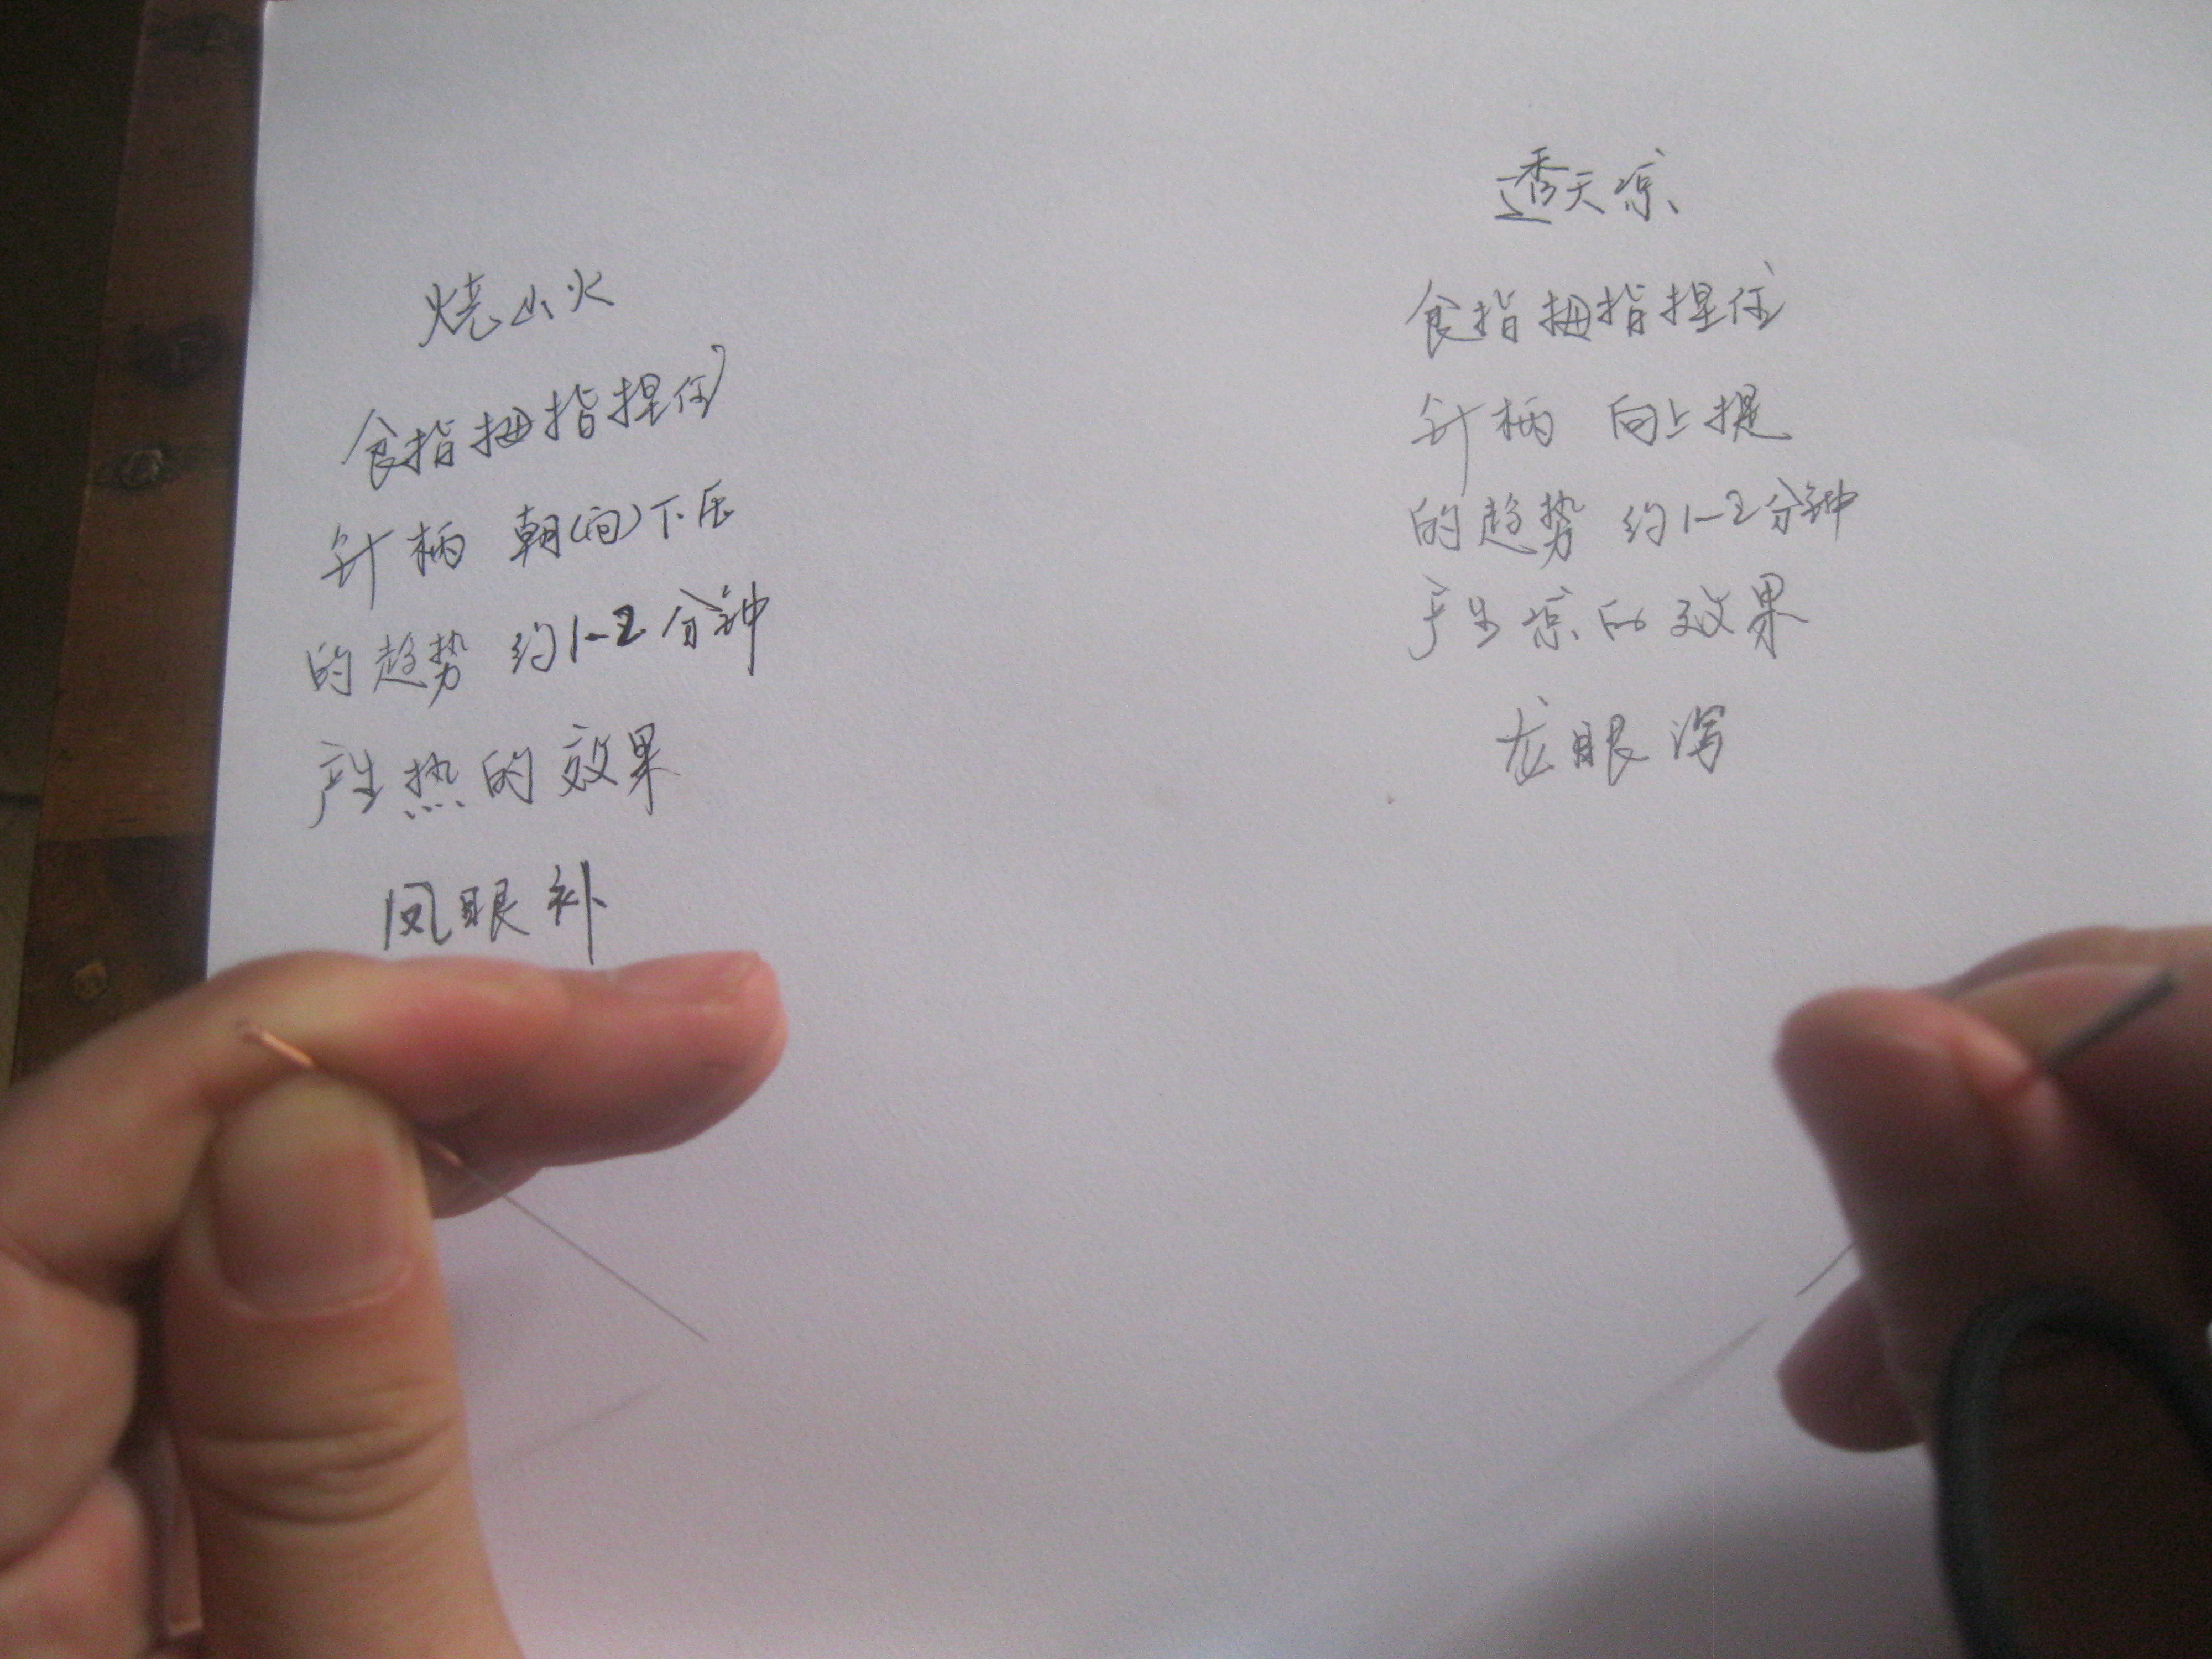 烧山火
食指拇指捏住
针柄 朝(向)下压
的趋势 约1-2分钟
产生热的效果
凤眼补
透天凉
食指拇指捏住
针柄 向上提
的趋势 约1-2分钟
产生凉的效果
龙眼泻